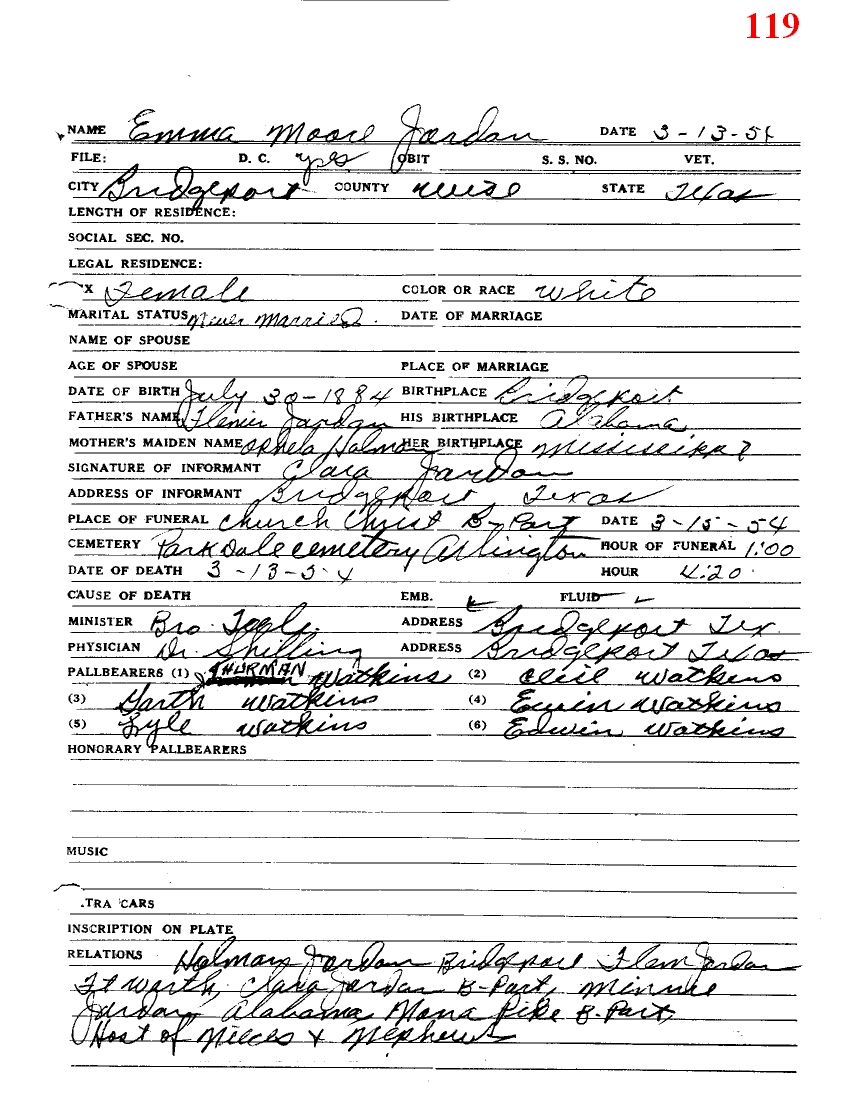 119
NAME Emma Moore Jordan DATE 3-13-54
FILE: D. C. yes OBIT S. S. NO. VET.
CITY Bridgeport COUNTY Wise STATE Texas
LENGTH OF RESIDENCE:
SOCIAL SEC. NO.
LEGAL RESIDENCE:
X Female COLOR OR RACE White
MARITAL STATUS Never Married. DATE OF MARRIAGE
NAME OF SPOUSE
AGE OF SPOUSE PLACE OF MARRIAGE
DATE OF BIRTH July 30-1884 BIRTHPLACE Bridgeport
FATHER'S NAME Jordan HIS BIRTHPLACE Alabama
MOTHER'S MAIDEN NAME Ophela Holman HER BIRTHPLACE Mississippi
SIGNATURE OF INFORMANT Clara Jordan
ADDRESS OF INFORMANT Bridgeport, Texas
PLACE OF FUNERAL Church Christ B-Port DATE 3-15-54
CEMETERY Parkdale cemetery Arlington HOUR OF FUNERAL 1:00
DATE OF DEATH 3-13-54 HOUR 4:20
CAUSE OF DEATH EMB. FLUID
MINISTER Bro. ADDRESS Bridgeport Tex
PHYSICIAN Dr Shilling ADDRESS Bridgeport Texas
PALLBEARERS (1) THURMAN Watkins (2) Cleil Watkins
(3) Garth Watkins (4) Ewin Watkins
(5) Lyle Watkins (6) Edwin Watkins
HONORARY PALLBEARERS
MUSIC
.TRA CARS
INSCRIPTION ON PLATE
RELATIONS Holman Jordan Bridgeport Flem Jordan
Ft Worth, Clara Jordan B-Port, Minnie
Jordan, Alabama Mona Pike B-Port,
Host of Nieces & Nephews